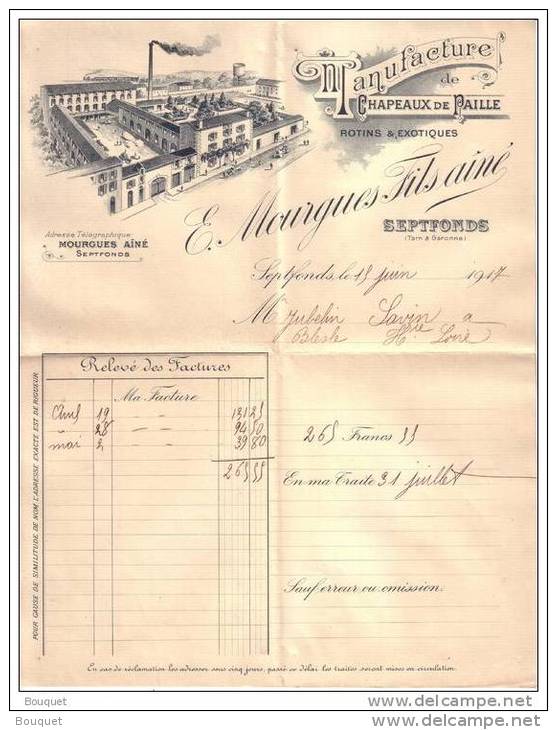 Manufacture
de
CHAPEAUX DE PAILLE
ROTINS & EXOTIQUES
E. Mourgues Fils aîné
SEPTFONDS
(Tarn & Garonne)
Adresse Télégraphique
MOURGUES AÎNÉ
SEPTFONDS
Septfonds, le 15 juin 1917
M Jubelin Savin a
Blesle Hte Loire
Relevé des Factures
Ma Facture
Avril 19 " " 131 25
" 28 " " 94 50
mai 2 " " 39 80
265 55
265 Francs 55
En ma Traite 31 juillet
Sauf erreur ou omission.
POUR CAUSE DE SIMILITUDE DE NOM L'ADRESSE EXACTE EST DE RIGUEUR
En cas de réclamation les adresser sous cinq jours, passé ce délai les traites seront mises en circulation.
Bouquet
Bouquet
Bouquet
Bouquet
www.delcampe.net
www.delcampe.net